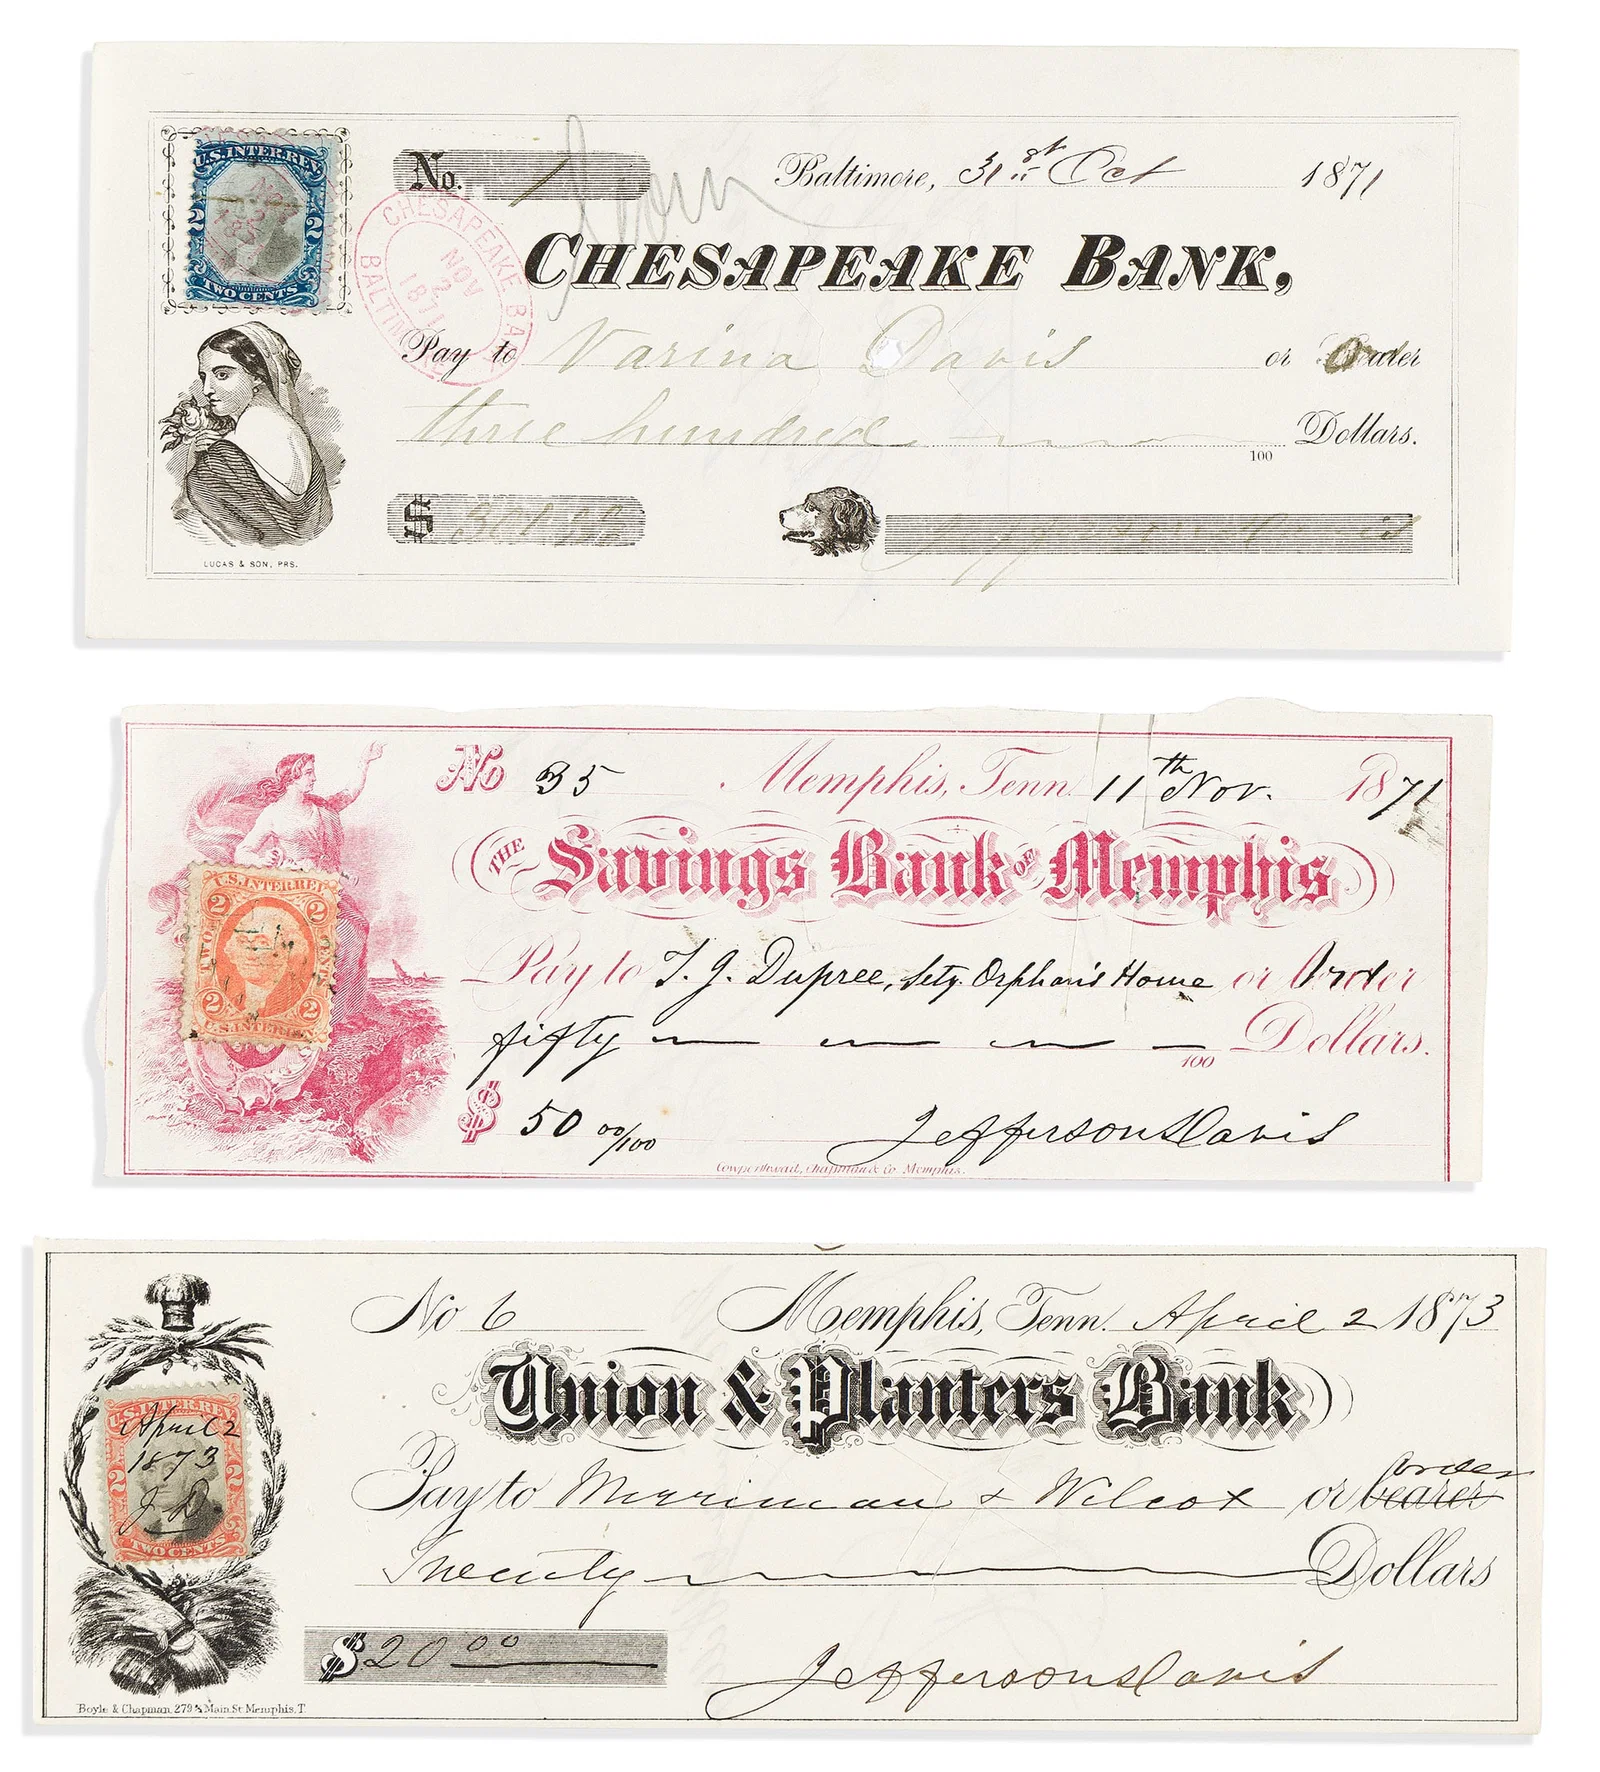 U.S. INTER. REV.
2 2
TWO CENTS
No. 1
Baltimore, 31st Oct 1871
CHESAPEAKE BANK
NOV
2
1871
BALTIMORE
CHESAPEAKE BANK,
Pay to Varina Davis or Order
three hundred Dollars.
100
$
Jefferson Davis
LUCAS & SON, PRS.
No 35 Memphis, Tenn. 11th Nov. 1871
THE Savings Bank OF Memphis
U.S. INTER. REV.
2 2
TWO CENTS
2 2
U.S. INTER. REV.
Pay to T. J. Dupree, Sety. Orphan's Home or Order
fifty Dollars.
100
$ 50 00/100
Jefferson Davis
Cowperthwait, Chapman & Co. Memphis.
No 6 Memphis, Tenn. April 2 1873
Union & Planters Bank
U.S. INTER. REV.
April 2
1873
2 2
J D
TWO CENTS
order
Pay to Merriman & Wilcox or bearer
Twenty Dollars
$ 20 00
Jefferson Davis
Boyle & Chapman, 279½ Main St Memphis, T.